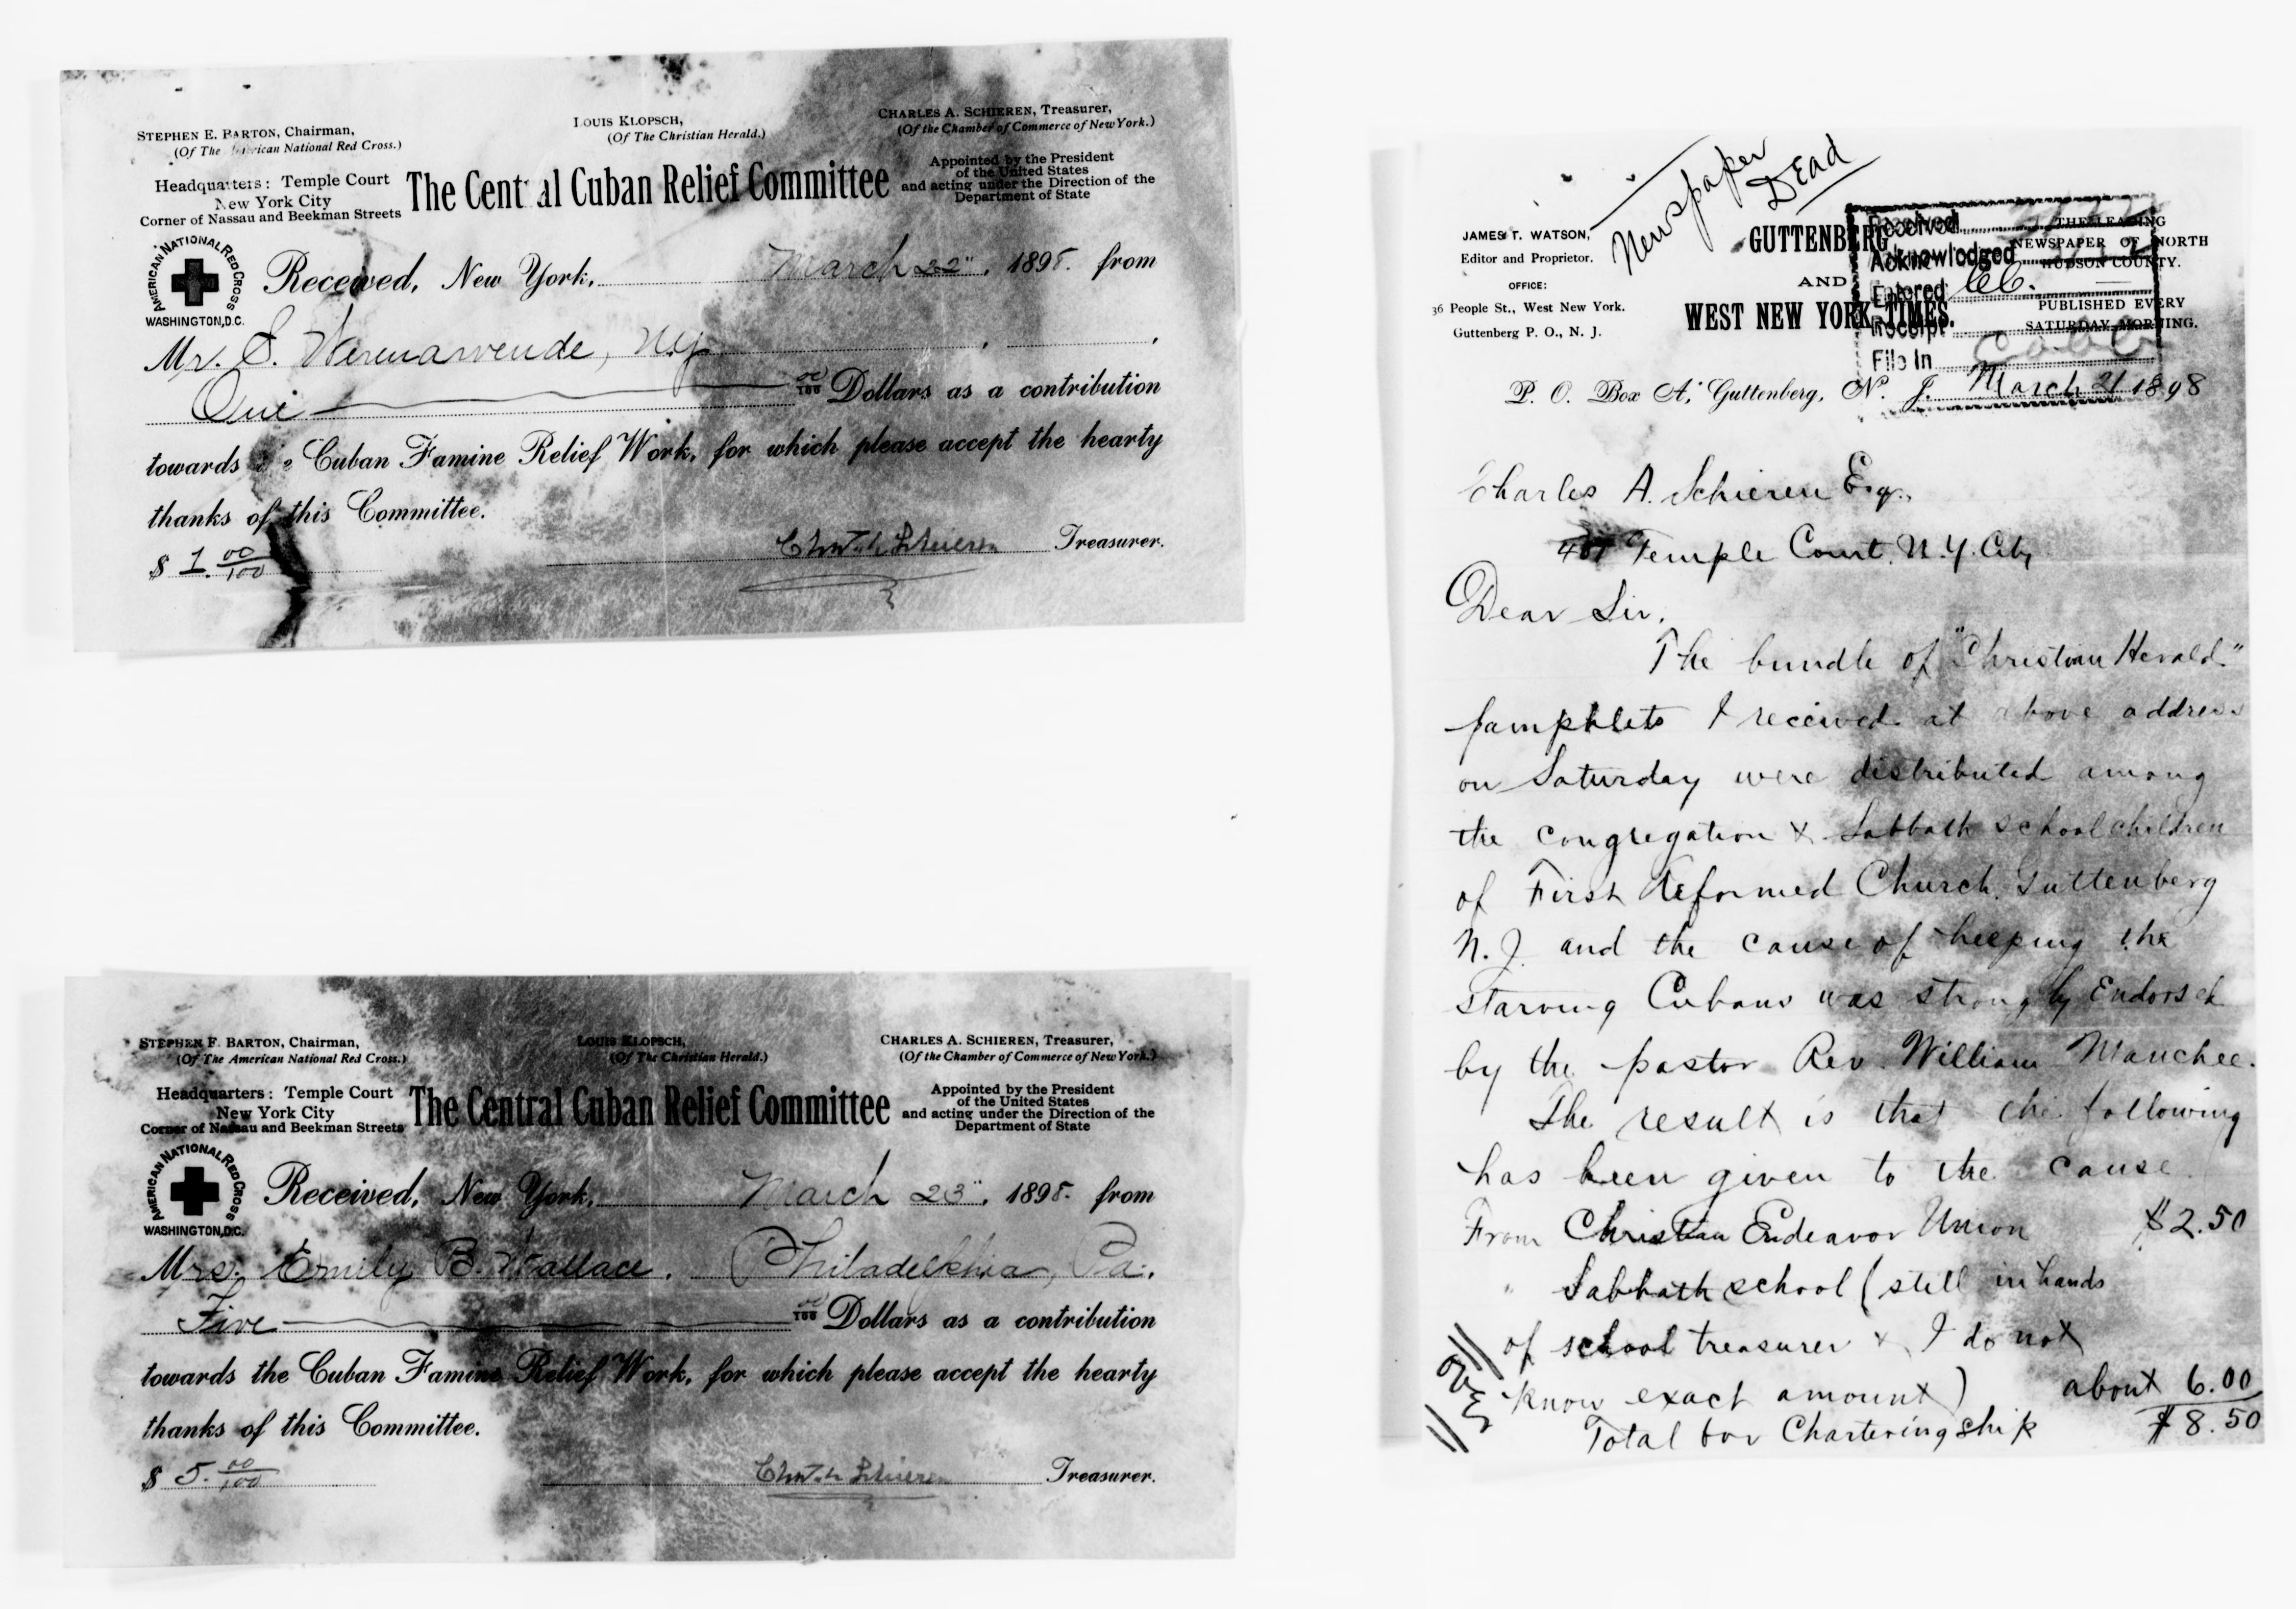 STEPHEN E. BARTON, Chairman,
(Of The American National Red Cross.)
LOUIS KLOPSCH,
(Of The Christian Herald.)
CHARLES A. SCHIEREN, Treasurer,
(Of the Chamber of Commerce of New York.)
Headquarters: Temple Court
New York City
Corner of Nassau and Beekman Streets
The Central Cuban Relief Committee
Appointed by the President
of the United States
and acting under the Direction of the
Department of State
AMERICAN NATIONAL RED CROSS
WASHINGTON, D.C.
Received, New York, March 22", 1898. from
Mr. N.Y.
One 00/100 Dollars as a contribution
towards Cuban Famine Relief Work, for which please accept the hearty
thanks of this Committee.
$ 1. 00/100 Chas. A. Schieren Treasurer.
STEPHEN E. BARTON, Chairman,
(Of The American National Red Cross.)
LOUIS KLOPSCH,
(Of The Christian Herald.)
CHARLES A. SCHIEREN, Treasurer,
(Of the Chamber of Commerce of New York.)
Headquarters: Temple Court
New York City
Corner of Nassau and Beekman Streets
The Central Cuban Relief Committee
Appointed by the President
of the United States
and acting under the Direction of the
Department of State
AMERICAN NATIONAL RED CROSS
WASHINGTON, D.C.
Received, New York, March 23", 1898. from
Mrs. Emily B. Wallace. Philadelphia, Pa.
Five 00/100 Dollars as a contribution
towards the Cuban Famine Relief Work, for which please accept the hearty
thanks of this Committee.
$ 5. 00/100 Chas. A. Schieren Treasurer.
Newspaper
Dead
JAMES T. WATSON,
Editor and Proprietor.
OFFICE:
36 People St., West New York.
Guttenberg P. O., N. J.
GUTTENBERG
AND
WEST NEW YORK TIMES.
THE LEADING
NEWSPAPER OF NORTH
HUDSON COUNTY.
PUBLISHED EVERY
SATURDAY MORNING.
Received
Acknowledged
Entered
Receipt
File In Cuba
P. O. Box A, Guttenberg, N. J. March 21 1898
Charles A. Schieren Esq.,
Temple Court. N.Y. City
Dear Sir,
The bundle of "Christian Herald"
pamphlets I received at above address
on Saturday were distributed among
the congregation & Sabbath school children
of First Reformed Church, Guttenberg
N.J. and the cause of helping the
starving Cubans was strongly Endorsed
by the pastor Rev. William Manchee.
The result is that the following
has been given to the cause
From Christian Endeavor Union $2.50
" Sabbath school (still in hands
of school treasurer & I do not
know exact amount) about 6.00
Total for Chartering ship $8.50
over